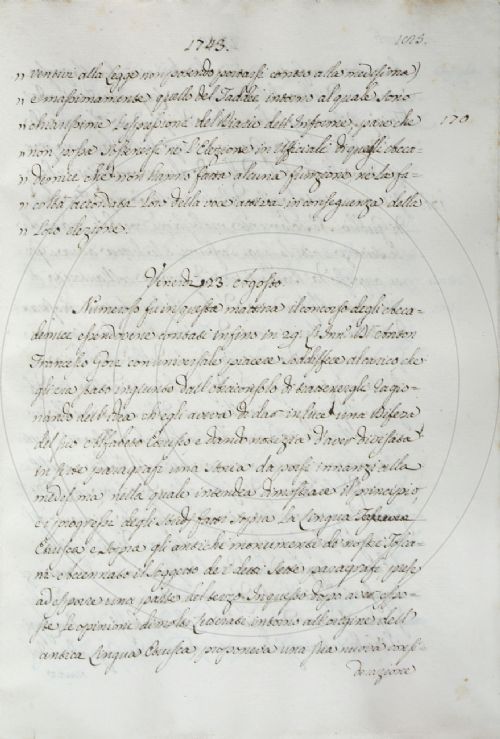 1743.
170
" venire alla Legge non potendo portarsi contro alla medesima)
" e massimamente quello del Taddei, intorno al quale sono
" chiarissime l'espressioni del Viacio dell'Informe, pare che
" non possa sussistersi nè l'Elezione in Uffiziali di quelli Acca-
" demici che non hanno fatto alcuna funzione nè la fa-
" coltà accordata loro della voce attiva in conseguenza della
" Loro elezione.
Venerdì 23. Agosto
Numeroso fu in questa mattina il concorso degli Acca-
demici essendovene contati infino in 29. Anton
Francesco Gori con universale piacere soddisfece al carico che
gli era stato ingiunto dall'Arciconsolo di trattenergli ragio-
nando dell'Idea ch'egli aveva di dar in luce una Difesa
del suo Alfabeto Etrusco e dando notizia d'aver divisata
in sette paragrafi una storia da porsi innanzi alla
medesima nella quale intendea dimostrare il principio,
e i progressi degli studj fatti sopra la Lingua
Etrusca e sopra gli antichi monumenti de nostri Tosca-
ni. Accennato il soggetto de i detti sette paragrafi pres
ad esporre una parte del terzo. In questo dopo aver espo-
ste le opinioni di molti Letterati intorno all'origine dell'
antica Lingua Etrusca proponeva una sua nuova consi-
derazione